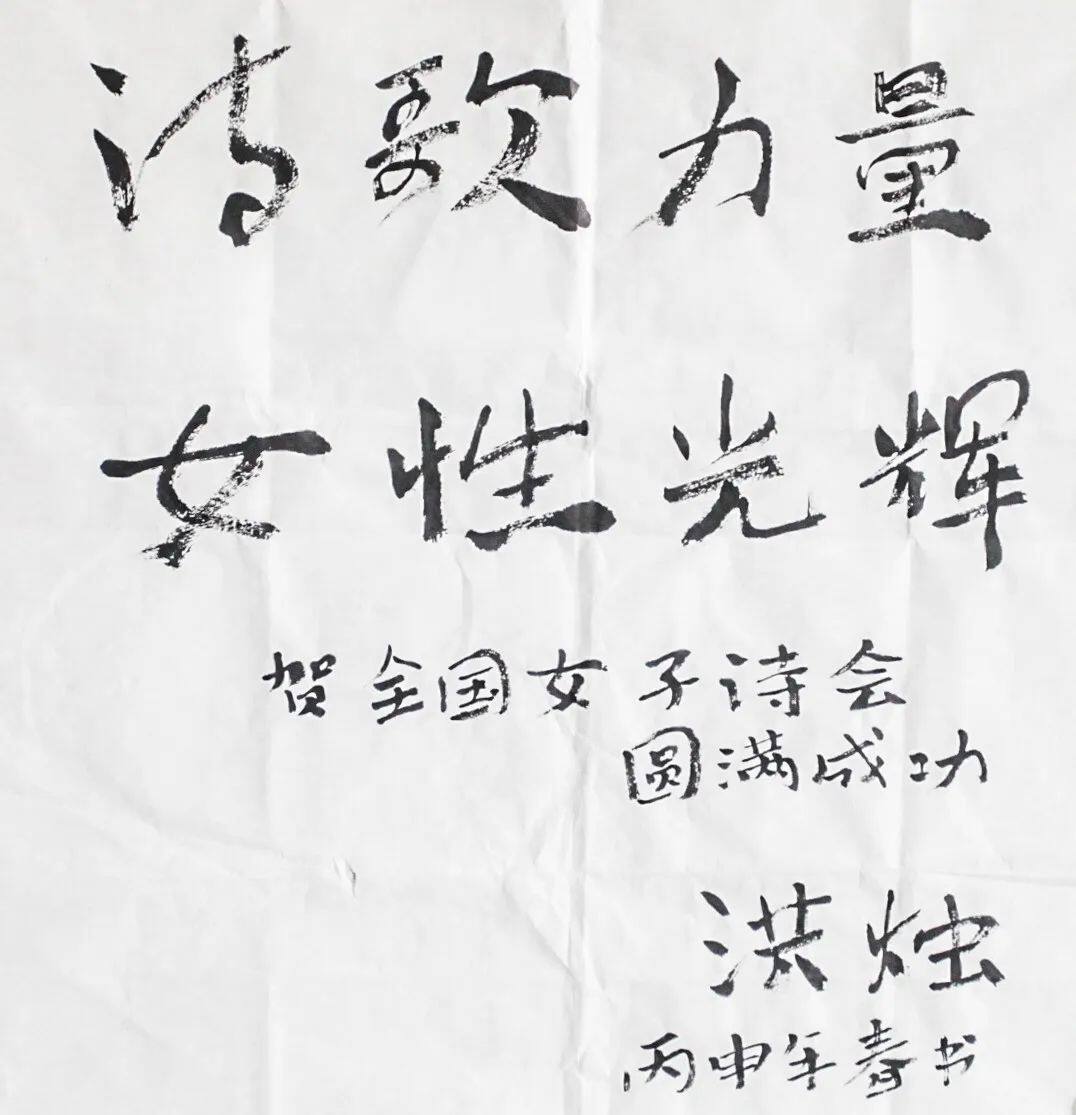 诗歌力量
女性光辉
贺全国女子诗会
圆满成功
洪烛
丙申年春书